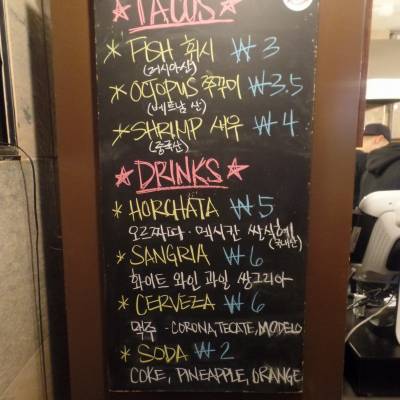 TACOS
* FISH 휘시 ₩3
(러시아산)
* OCTOPUS 쭈꾸미 ₩3.5
(베트남산)
* SHRIMP 새우 ₩4
(중국산)
DRINKS
* HORCHATA ₩5
오르짜따 · 멕시칸 쌀식혜 (국내산)
* SANGRIA ₩6
화이트 와인 과일 쌍그리아
* CERVEZA ₩6
맥주 - CORONA, TECATE, MODELO
* SODA ₩2
COKE, PINEAPPLE, ORANGE